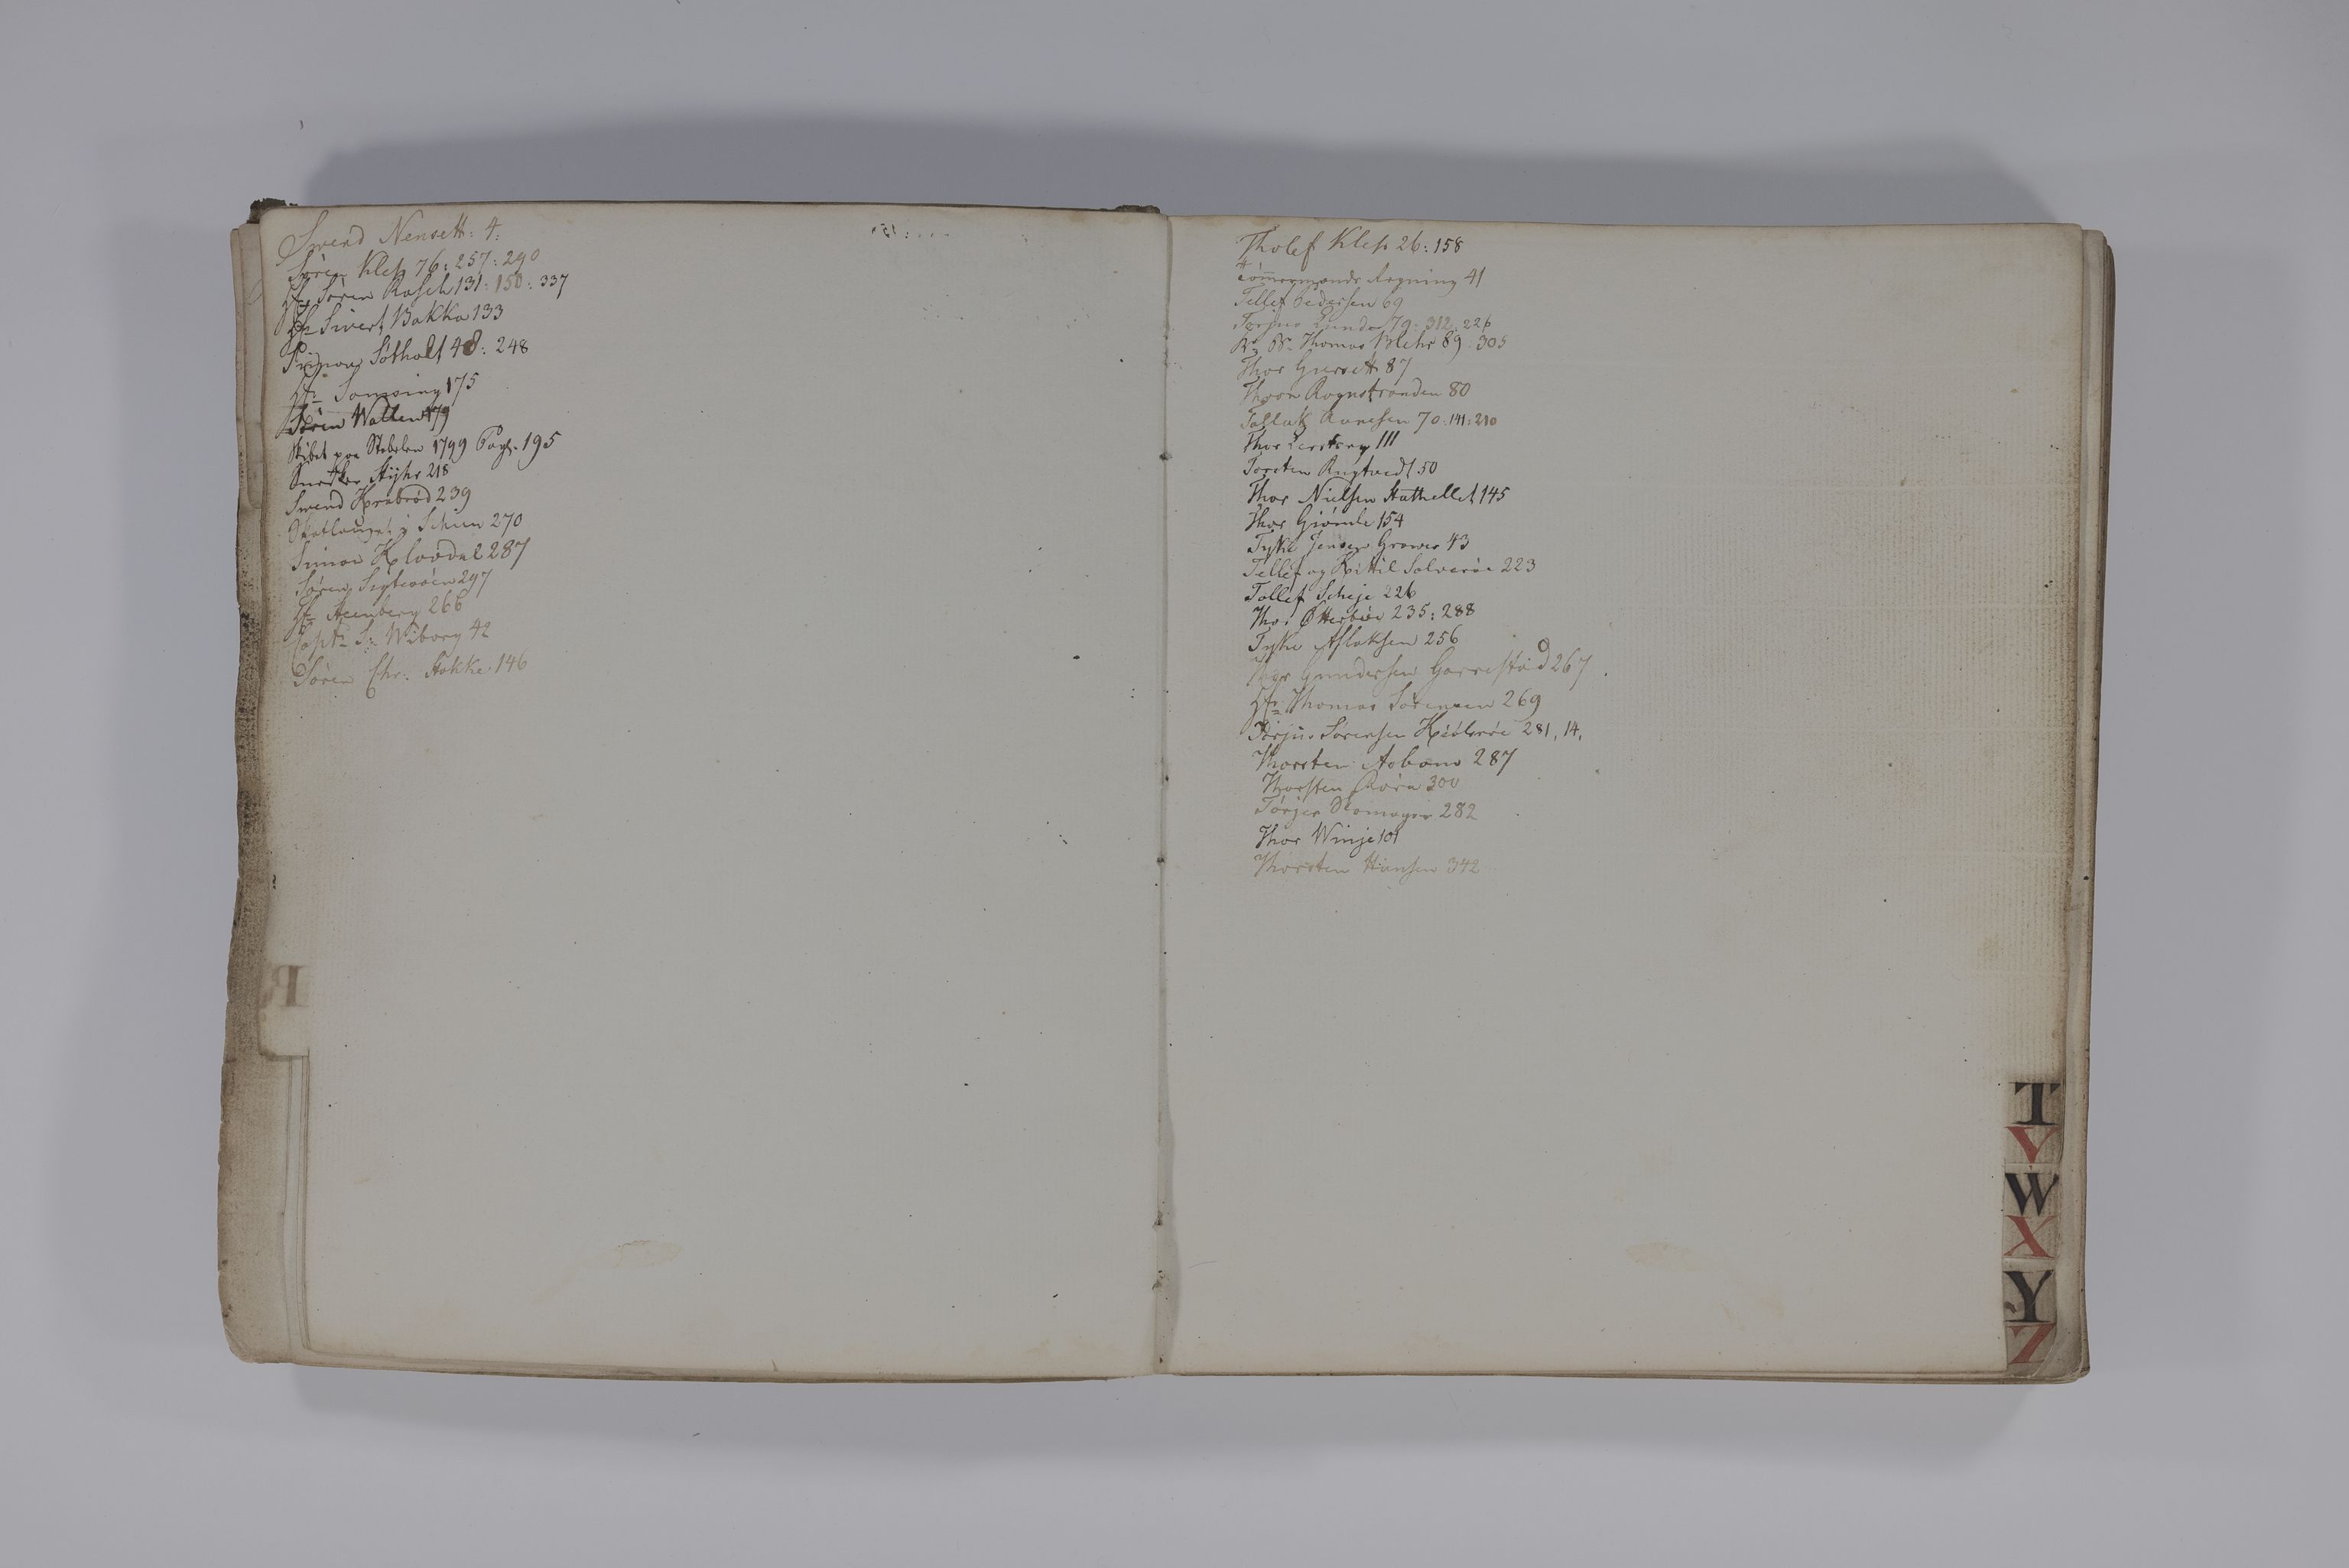 Svend Nensett: 4.
Søren Klep 76: 257: 290
Hr. Søren Rasch 131: 150: 337
Hr. Sivert Bakka 133
Simon Søtholt 48: 248
Hr. 175
Søren Wallen 179
Skibet paa Stabelen 1799 Pag. 195
Snedker 218
Svend Krabrød 239
i Schien 270
Simon Klovdal 287
Søren 297
Hr. Steenberg 266
Capt. S: Wiborg 42
Søren Chr. Stokke 146
R
Tholef Klep 26: 158
Tømermands Regning 41
Tellef Pedersen 69
Torjus Lunde 79: 312: 226
Thomas Blehr 89: 305
Thor Gursett 87
Thoer Rognstranden 80
Tollak Aanesen 70: 141: 210
Thor 111
Torsten Rugtvedt 50
Thor Nielsen Stathellet 145
Thor Giømle 154
Tyke Jensen Graver 43
Tellef og Kittil Salverøe 223
Tollef Scheje 226
Thor Øtterbøe 235: 288
Tyke Aslaksen 256
Thor Gundersen Garrestad 267
Hr. Thomas Sørensen 269
Torjus Sørensen Kiølsrøe 281, 14,
Thorsten 287
Thorsten 300
Tørjer 282
Thor Winje 101
Thorsten Hansen 342
T
V
W
X
Y
Z